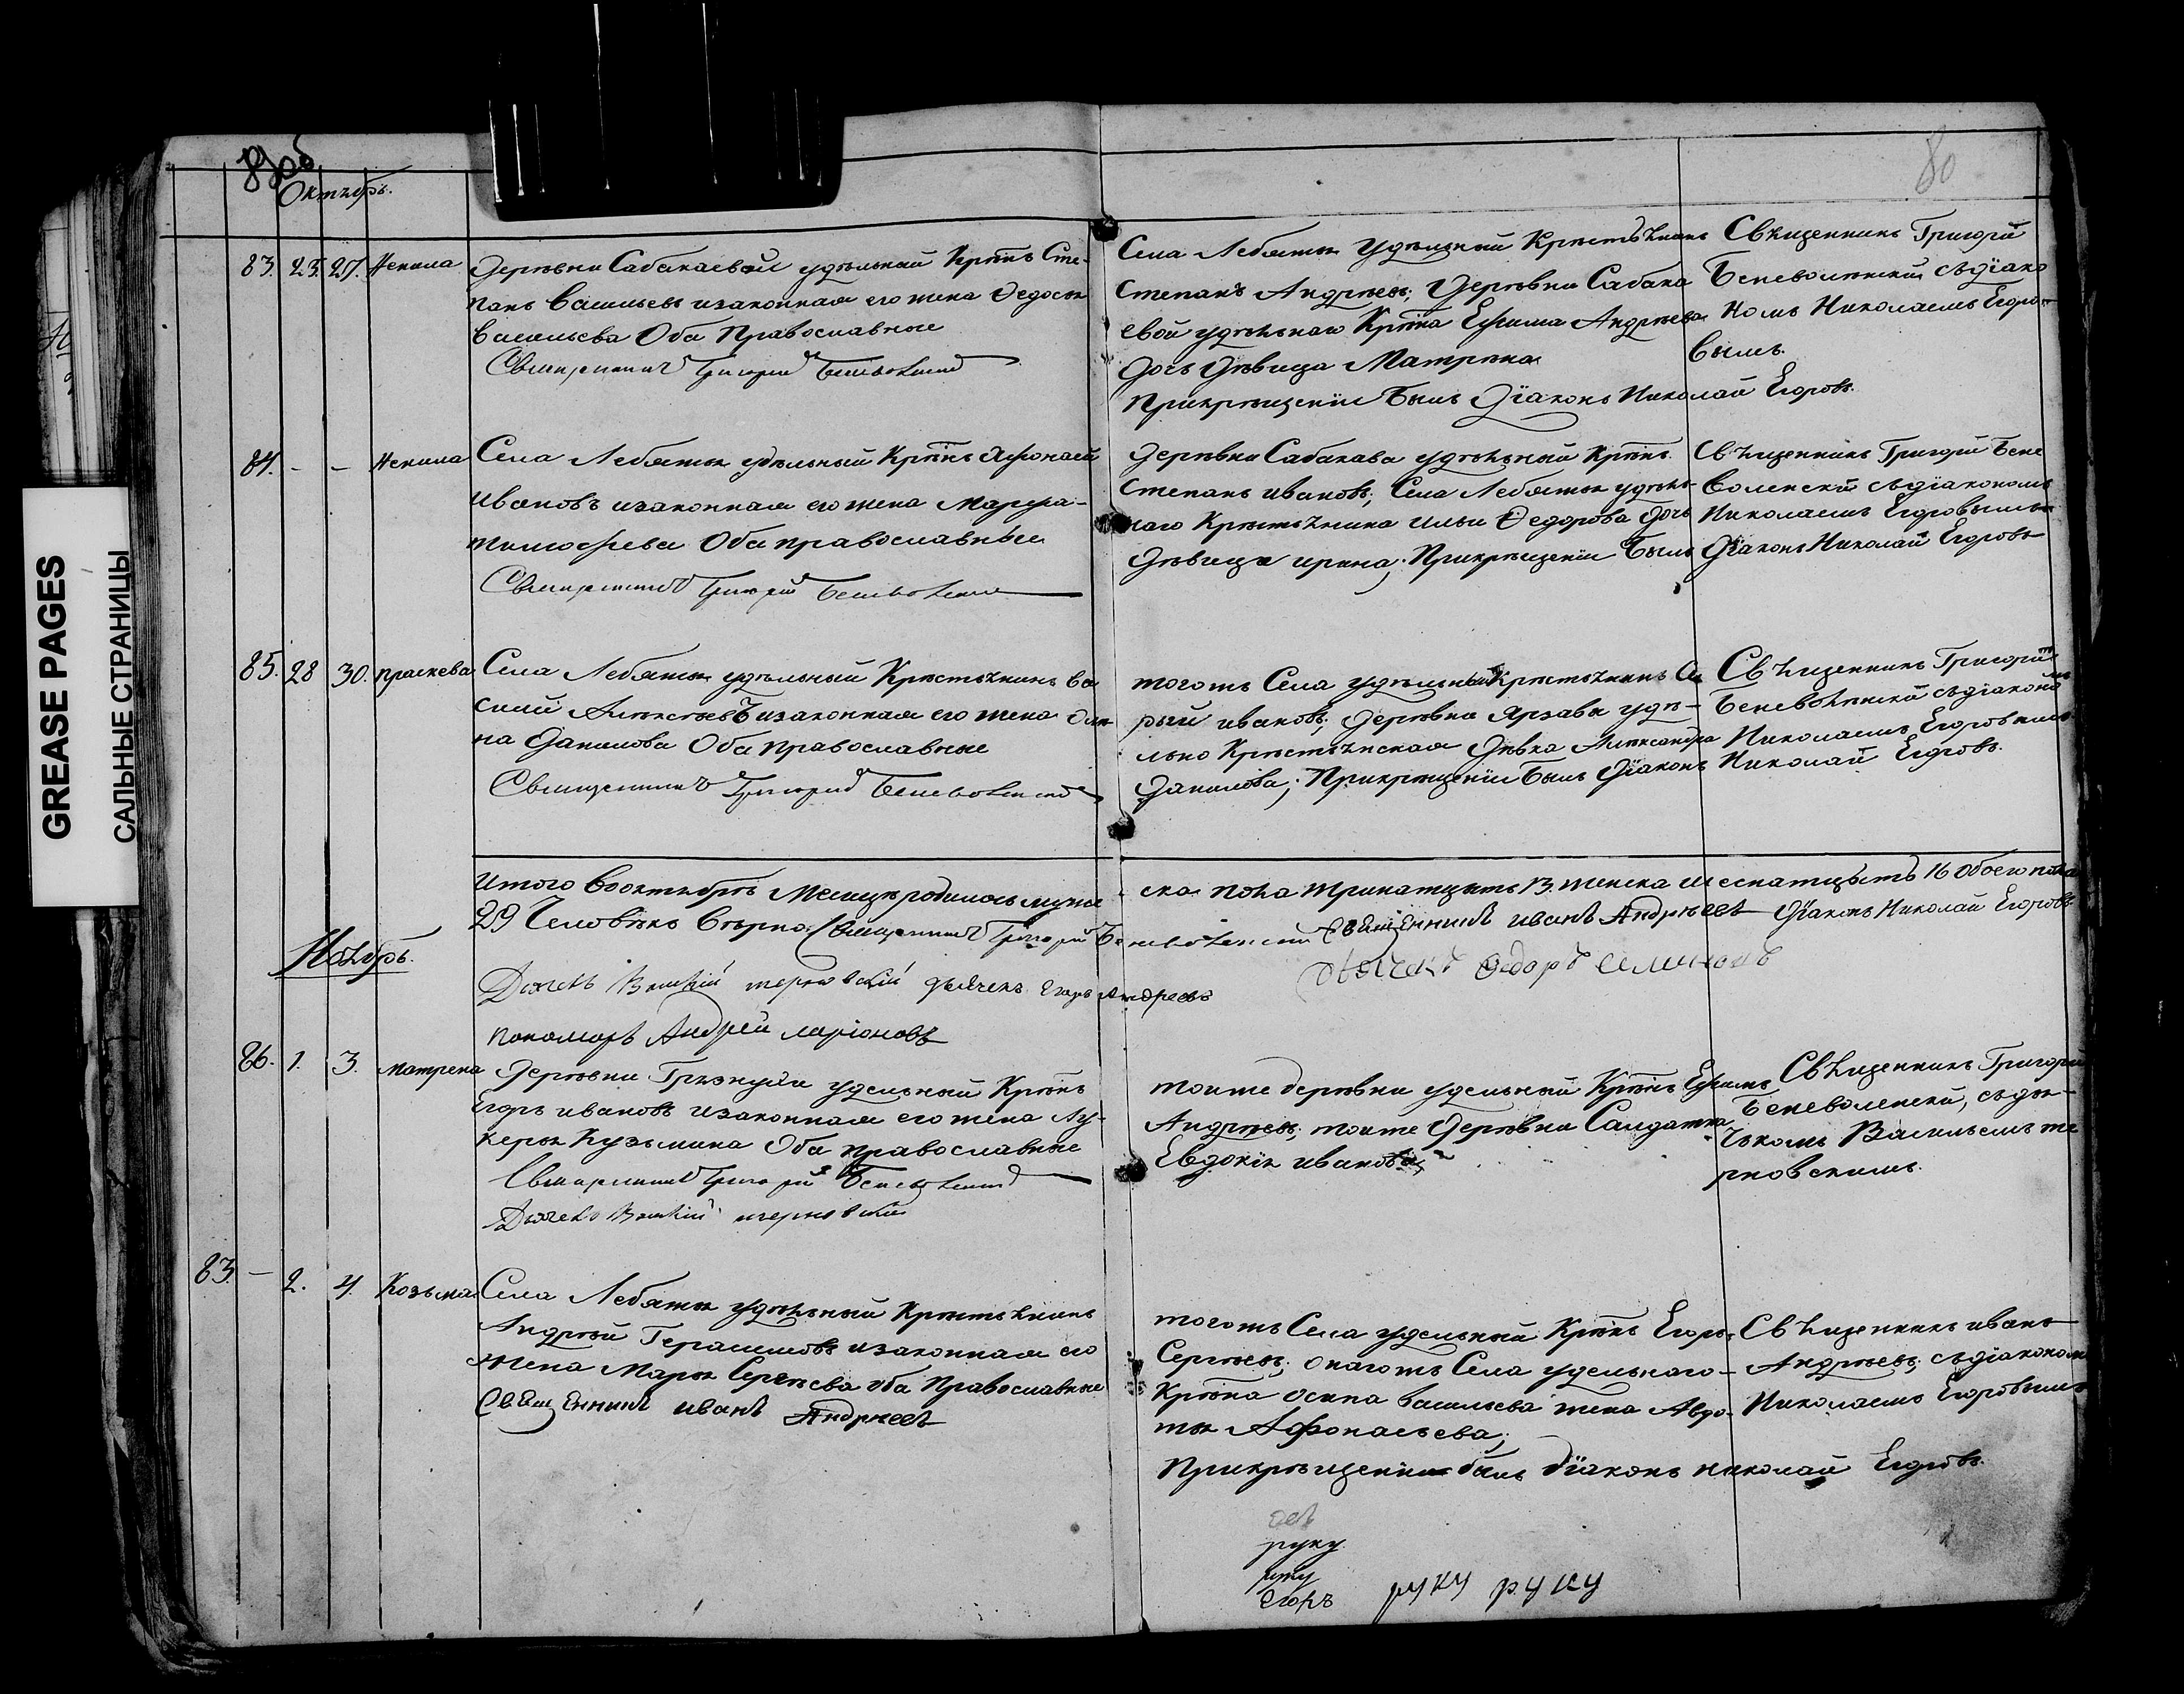 GREASE PAGES
САЛЬНЫЕ СТРАНИЦЫ
80
Октябрь.
83. 25. 27. Ненила
Деревни Сабакаевой удѣльный Крѣнъ Сте-
панъ Васильевъ изаконная его жена Ѳедосья
Васильева Оба Православные
Священникъ Григорій Беневоленскій
Села Лебяжья Удѣльный Крестьянинъ
Степанъ Андреевъ; Деревни Сабака
евой удѣльнаго Крѣна Ефима Андреева
дочь дѣвица Матрена
Прикрещеніи Былъ Діаконъ Николай Егоровъ.
Священникъ Григорій
Беневоленскій съдіако
номъ Николаемъ Егоро-
вымъ.
84. - - Ненила
Села Лебяжья удѣльный Крѣнъ Афонасей
Ивановъ изаконная его жена Марфа
тимофѣева Оба православные
Священникъ Григорій Беневоленскій
Деревни Сабакава удѣльный Крѣнъ
Степанъ Ивановъ; Села Лебяжья удѣль-
наго Крестьянина Ильи Ѳедорова дочь
дѣвица ирина; Прикрещеніи Былъ Діаконъ Николай Егоровъ
Священникъ Григорій Бене
воленскій съдіакономъ
Николаемъ Егоровымъ
85. 28 30. Праскева
Села Лебяжья удѣльный Крестьянинъ Ва
силій Алексѣевъ изаконная его жена
на Данилова Оба православные
Священникъ Григорій Беневоленскій
тогожъ Села удѣльный Крестьянинъ Са
рый Ивановъ; деревни Ярзавы удѣ-
льно Крестьянская Дѣвка Александра
Данилова; Прикрещеніи Былъ Діаконъ Николай Егоровъ.
Священникъ Григорій
Беневоленскій съдіакономъ
Николаемъ Егоровымъ
Итого Воктябрѣ Месяцѣ родилось муже
ска пола тринатцать 13. женска шеснатцать 16 обоего пола
29 Человѣкъ Вѣрно. Священникъ Григорій Беневоленскій Священникъ Иванъ Андреевъ Діаконъ Николай Егоровъ
Ноябрь.
Дьячекъ Василій терновскій дьячекъ Егоръ Андреевъ
дьячекъ Ѳедоръ Семеновъ
пономарь Андрей ларіоновъ
86. 1. 3. Матрена
Деревни Грязнухи удельный Крѣнъ
Егоръ Ивановъ изаконная его жена Лу-
керья Кузьмина Оба православные
Священникъ Григорій Беневоленскій
Дьячекъ Василій терновскій
тоиже деревни удельный Крѣнъ Ефимъ
Андреевъ; тоиже деревни Салдатка
Евдокія Иванова
Священникъ Григорій
Беневоленскій, съдья-
чкомъ Васильемъ те
рновскимъ.
83. - 2. 4. Козьма
Села Лебяжья удѣльный Крестьянинъ
Андрей Герасимовъ изаконная его
жена Марья Сергеева оба Православные
Священникъ Иванъ Андреевъ
тогожъ Села удельный Крѣнъ Егоръ
Сергеевъ; онагожъ Села удельнаго
Крѣна Осипа Васильева жена Авдо-
тья Афонасьева;
Прикрещеніи былъ діаконъ николай Егоровъ.
Священникъ иванъ
Андреевъ; съдіакономъ
Николаемъ Егоровымъ
руку
руку
Егоръ
руку руку